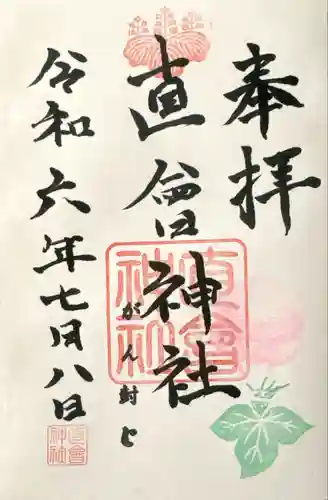 奉拝
直會神社
がん封じ
令和六年七月八日
直會神社
直會神社